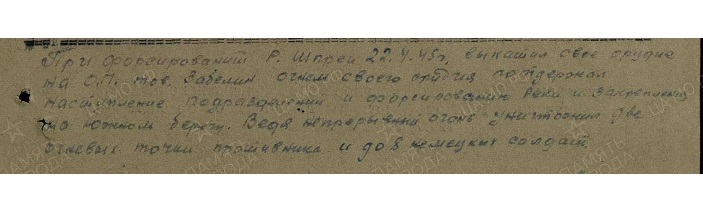 При форсировании Р. Шпрей 22.4.45г, выкатил свое орудие
на О.П. тов. Забелин огнем своего орудия поддержал
наступление подразделений и форсированию реки и закреплению
на южном берегу. Ведя непрерывный огонь уничтожил две
огневых точки противника и до 8 немецких солдат